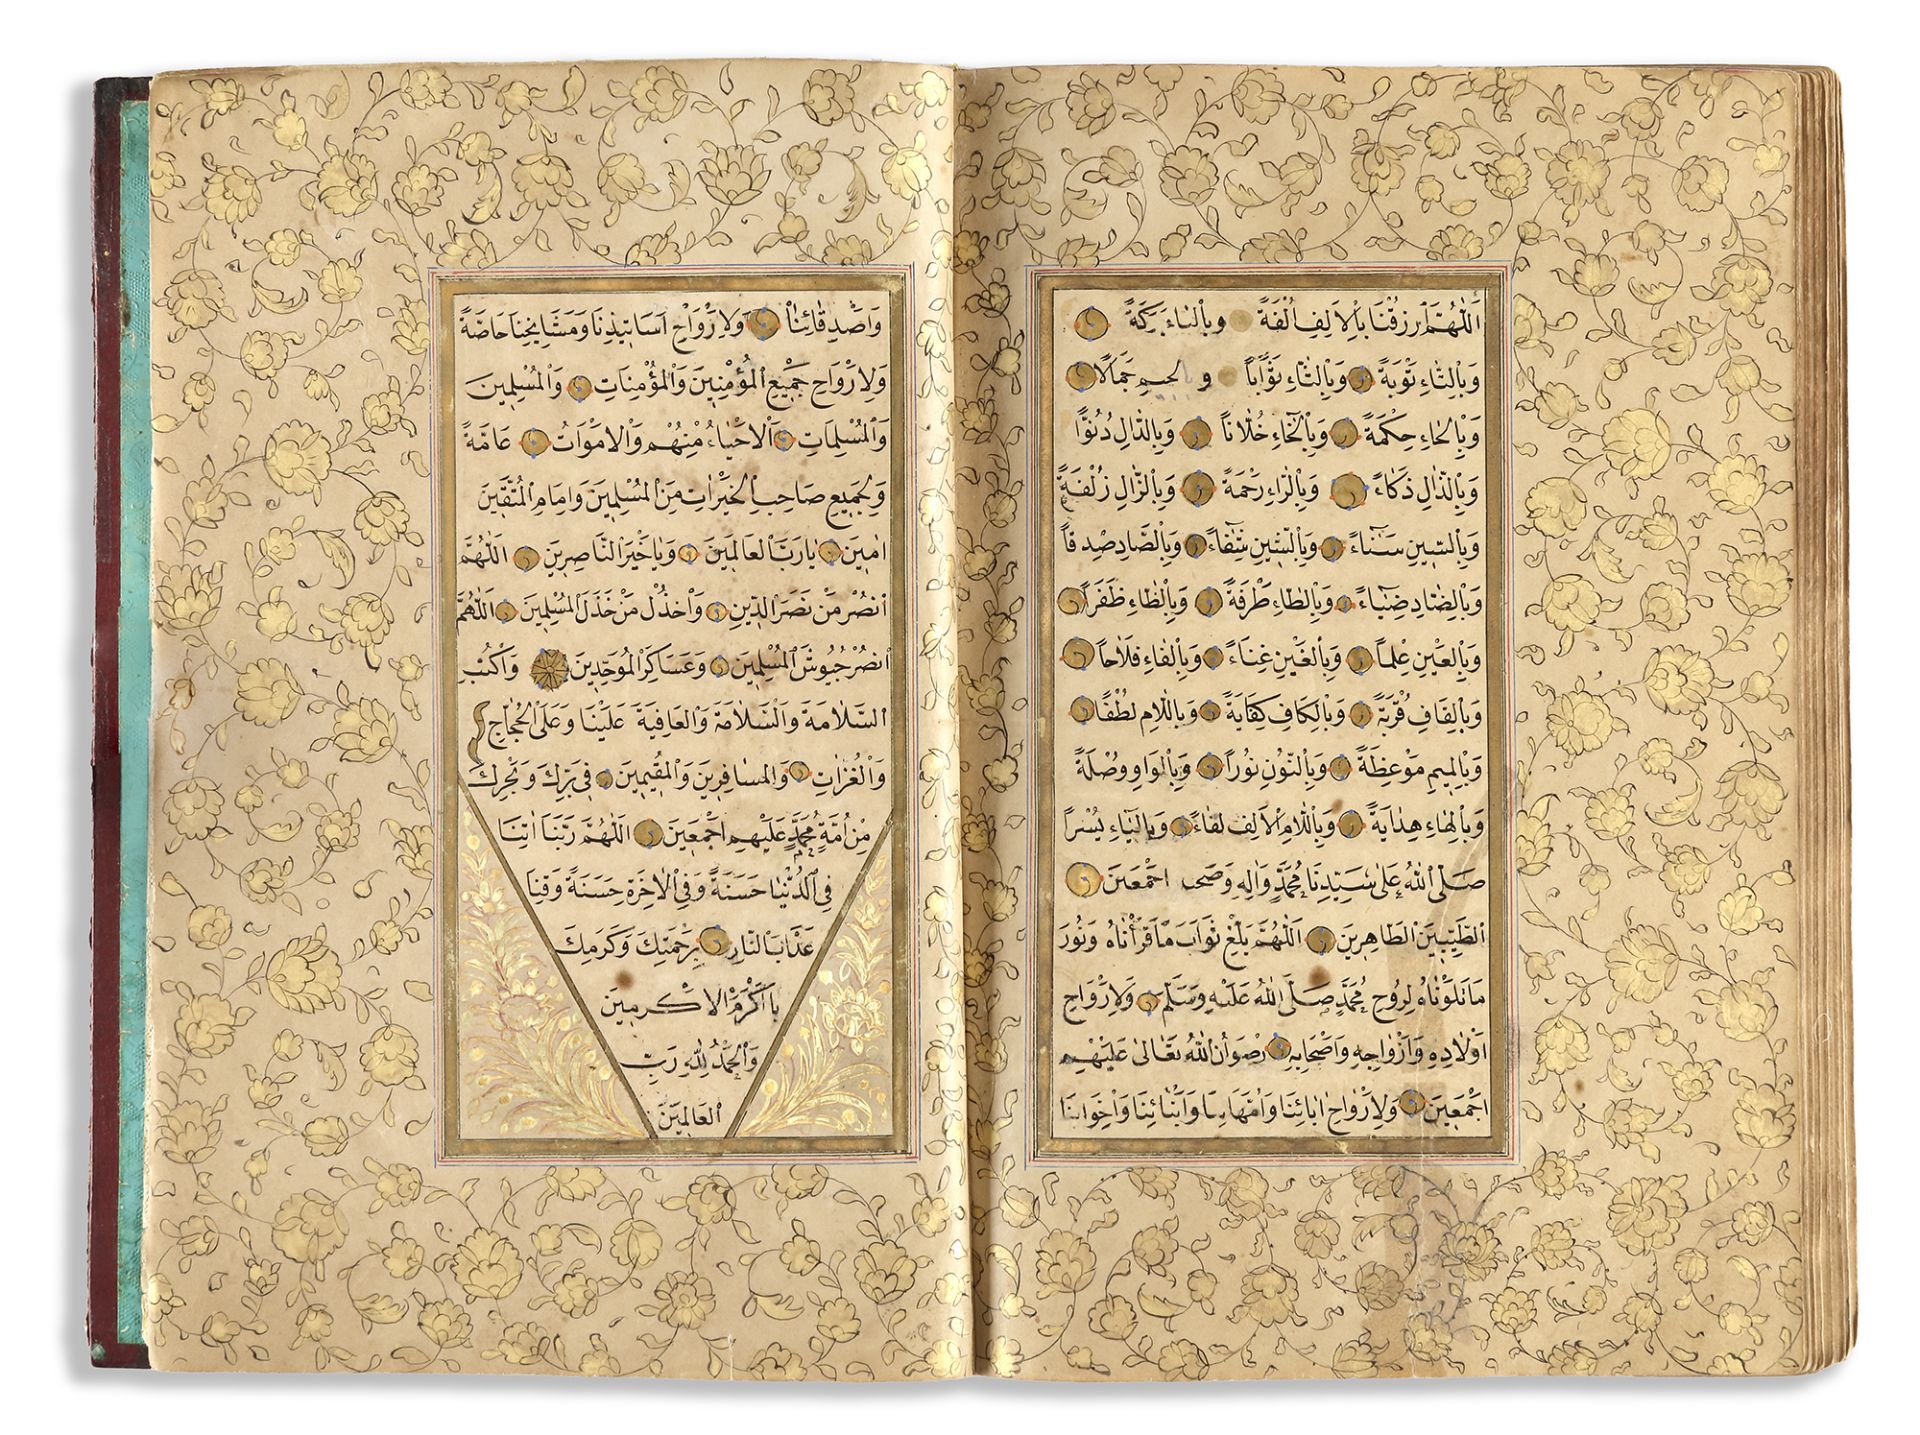 اَللّٰهُمَّ ارْزُقْنَا بِالْاَلِفِ اُلْفَةً وَبِالْبَاءِ بَرَكَةً
وَبِالتَّاءِ تَوْبَةً وَبِالثَّاءِ ثَوَابًا وَبِالْجِيمِ جَمَالًا
وَبِالْحَاءِ حِكْمَةً وَبِالْخَاءِ خُلَّانًا وَبِالدَّالِ دُنُوًّا
وَبِالذَّالِ ذَكَاءً وَبِالرَّاءِ رَحْمَةً وَبِالزَّالِ زُلْفَةً
وَبِالسِّينِ سَنَاءً وَبِالشِّينِ شِفَاءً وَبِالصَّادِ صِدْقًا
وَبِالضَّادِ ضِيَاءً وَبِالطَّاءِ طَرْفَةً وَبِالظَّاءِ ظَفَرًا
وَبِالْعَيْنِ عِلْمًا وَبِالْغَيْنِ غِنَاءً وَبِالْفَاءِ فَلَاحًا
وَبِالْقَافِ قُرْبَةً وَبِالْكَافِ كِفَايَةً وَبِاللَّامِ لُطْفًا
وَبِالْمِيمِ مَوْعِظَةً وَبِالنُّونِ نُورًا وَبِالْوَاوِ وُصْلَةً
وَبِالْهَاءِ هِدَايَةً وَبِاللَّامِ الْاَلِفِ لِقَاءً وَبِالْيَاءِ يُسْرًا
صَلَّى اللهُ عَلٰى سَيِّدِنَا مُحَمَّدٍ وَاٰلِهِ وَصَحْبِهِ اَجْمَعِينَ
الطَّيِّبِينَ الطَّاهِرِينَ اَللّٰهُمَّ بَلِّغْ ثَوَابَ مَا قَرَأْنَاهُ وَنُورَ
مَا تَلَوْنَاهُ لِرُوحِ مُحَمَّدٍ صَلَّى اللهُ عَلَيْهِ وَسَلَّمَ وَلِاَرْوَاحِ
اَوْلَادِهِ وَاَزْوَاجِهِ وَاَصْحَابِهِ رِضْوَانُ اللهِ تَعَالٰى عَلَيْهِمْ
اَجْمَعِينَ وَلِاَرْوَاحِ اٰبَائِنَا وَاُمَّهَاتِنَا وَاَبْنَائِنَا وَاِخْوَانِنَا
وَاَصْدِقَائِنَا وَلِاَرْوَاحِ اَسَاتِيذِنَا وَمَشَايِخِنَا خَاصَّةً
وَلِاَرْوَاحِ جَمِيعِ الْمُؤْمِنِينَ وَالْمُؤْمِنَاتِ وَالْمُسْلِمِينَ
وَالْمُسْلِمَاتِ اَلْاَحْيَاءُ مِنْهُمْ وَالْاَمْوَاتُ عَامَّةً
وَلِجَمِيعِ صَاحِبِ الْخَيْرَاتِ مِنَ الْمُسْلِمِينَ وَاِمَامِ الْمُتَّقِينَ
اٰمِينَ يَارَبَّ الْعَالَمِينَ وَيَاخَيْرَ النَّاصِرِينَ اَللّٰهُمَّ
انْصُرْ مَنْ نَصَرَ الدِّينَ وَاخْذُلْ مَنْ خَذَلَ الْمُسْلِمِينَ اَللّٰهُمَّ
انْصُرْ جُيُوشَ الْمُسْلِمِينَ وَعَسَاكِرَ الْمُوَحِّدِينَ وَاكْتُبِ
السَّلَامَةَ وَالسَّلَامَةَ وَالْعَافِيَةَ عَلَيْنَا وَعَلَى الْحُجَّاجِ
وَالْغُزَاتِ وَالْمُسَافِرِينَ وَالْمُقِيمِينَ فِي بَرِّكَ وَبَحْرِكَ
مِنْ اُمَّةِ مُحَمَّدٍ عَلَيْهِمْ اَجْمَعِينَ اَللّٰهُمَّ رَبَّنَا اٰتِنَا
فِي الدُّنْيَا حَسَنَةً وَفِي الْاٰخِرَةِ حَسَنَةً وَقِنَا
عَذَابَ النَّارِ بِرَحْمَتِكَ وَكَرَمِكَ
يَا اَكْرَمَ الْاَكْرَمِينَ
وَالْحَمْدُ لِلّٰهِ رَبِّ
الْعَالَمِينَ